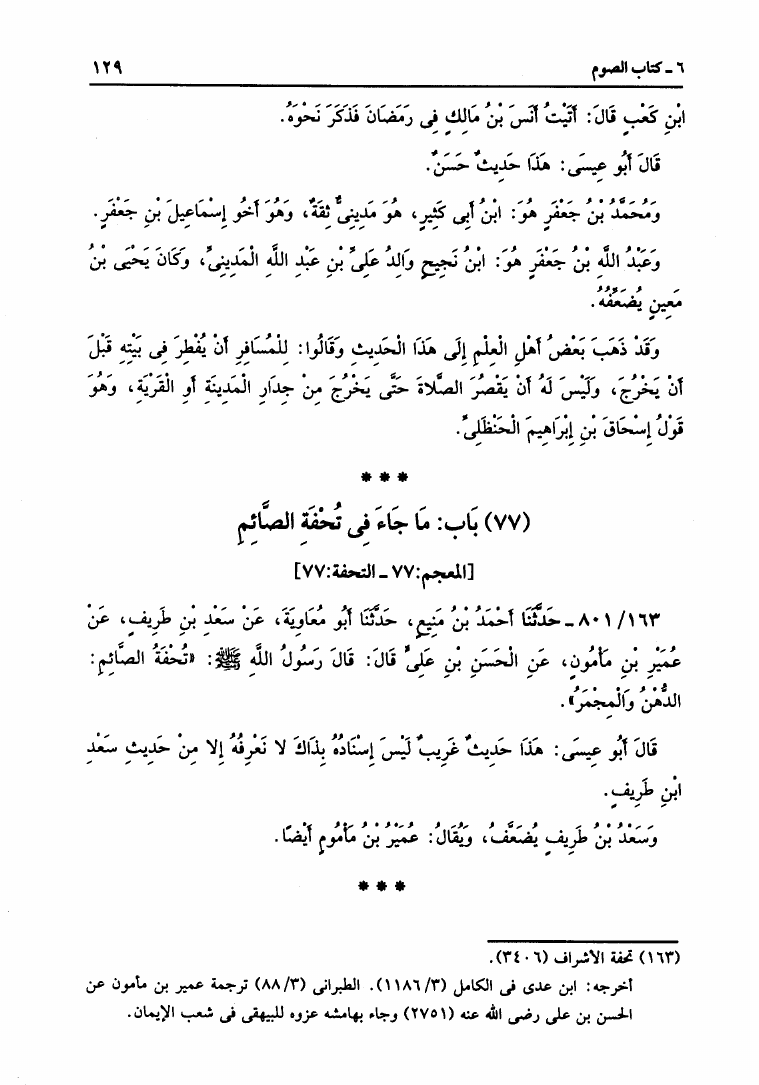 ٦ ـ كتاب الصوم ١٢٩
ابْنِ كَعْبٍ قَالَ: أَتَيْتُ أَنَسَ بْنَ مَالِكٍ فِى رَمَضَانَ فَذَكَرَ نَحْوَهُ.
قَالَ أَبُو عِيسَى: هَذَا حَدِيثٌ حَسَنٌ.
وَمُحَمَّدُ بْنُ جَعْفَرٍ هُوَ: ابْنُ أَبِى كَثِيرٍ، هُوَ مَدِينِىٌّ ثِقَةٌ، وَهُوَ أَخُو إِسْمَاعِيلَ بْنِ جَعْفَرٍ.
وَعَبْدُ اللَّهِ بْنُ جَعْفَرٍ هُوَ: ابْنُ نَجِيحٍ وَالِدُ عَلِىِّ بْنِ عَبْدِ اللَّهِ الْمَدِينِىِّ، وَكَانَ يَحْيَى بْنُ
مَعِينٍ يُضَعِّفُهُ.
وَقَدْ ذَهَبَ بَعْضُ أَهْلِ الْعِلْمِ إِلَى هَذَا الْحَدِيثِ وَقَالُوا: لِلْمُسَافِرِ أَنْ يُفْطِرَ فِى بَيْتِهِ قَبْلَ
أَنْ يَخْرُجَ، وَلَيْسَ لَهُ أَنْ يَقْصُرَ الصَّلاةَ حَتَّى يَخْرُجَ مِنْ جِدَارِ الْمَدِينَةِ أَوِ الْقَرْيَةِ، وَهُوَ
قَوْلُ إِسْحَاقَ بْنِ إِبْرَاهِيمَ الْحَنْظَلِىِّ.
* * *
(٧٧) بَاب: مَا جَاءَ فِى تُحْفَةِ الصَّائِمِ
[المعجم:٧٧ ـ التحفة:٧٧]
٨٠١/١٦٣ ـ حَدَّثَنَا أَحْمَدُ بْنُ مَنِيعٍ، حَدَّثَنَا أَبُو مُعَاوِيَةَ، عَنْ سَعْدِ بْنِ طَرِيفٍ، عَنْ
عُمَيْرِ بْنِ مَأْمُونٍ، عَنِ الْحَسَنِ بْنِ عَلِىٍّ قَالَ: قَالَ رَسُولُ اللَّهِ ﷺ: «تُحْفَةُ الصَّائِمِ:
الدُّهْنُ وَالْمِجْمَرُ».
قَالَ أَبُو عِيسَى: هَذَا حَدِيثٌ غَرِيبٌ لَيْسَ إِسْنَادُهُ بِذَاكَ لا نَعْرِفُهُ إِلا مِنْ حَدِيثِ سَعْدِ
ابْنِ طَرِيفٍ.
وَسَعْدُ بْنُ طَرِيفٍ يُضَعَّفُ، وَيُقَالُ: عُمَيْرُ بْنُ مَأْمُومٍ أَيْضًا.
* * *
(١٦٣) تحفة الأشراف (٣٤٠٦).
أخرجه: ابن عدى فى الكامل (٣/ ١١٨٦). الطبرانى (٣/ ٨٨) ترجمة عمير بن مأمون عن
الحسن بن على رضى الله عنه (٢٧٥١) وجاء بهامشه عزوه للبيهقى فى شعب الإيمان.